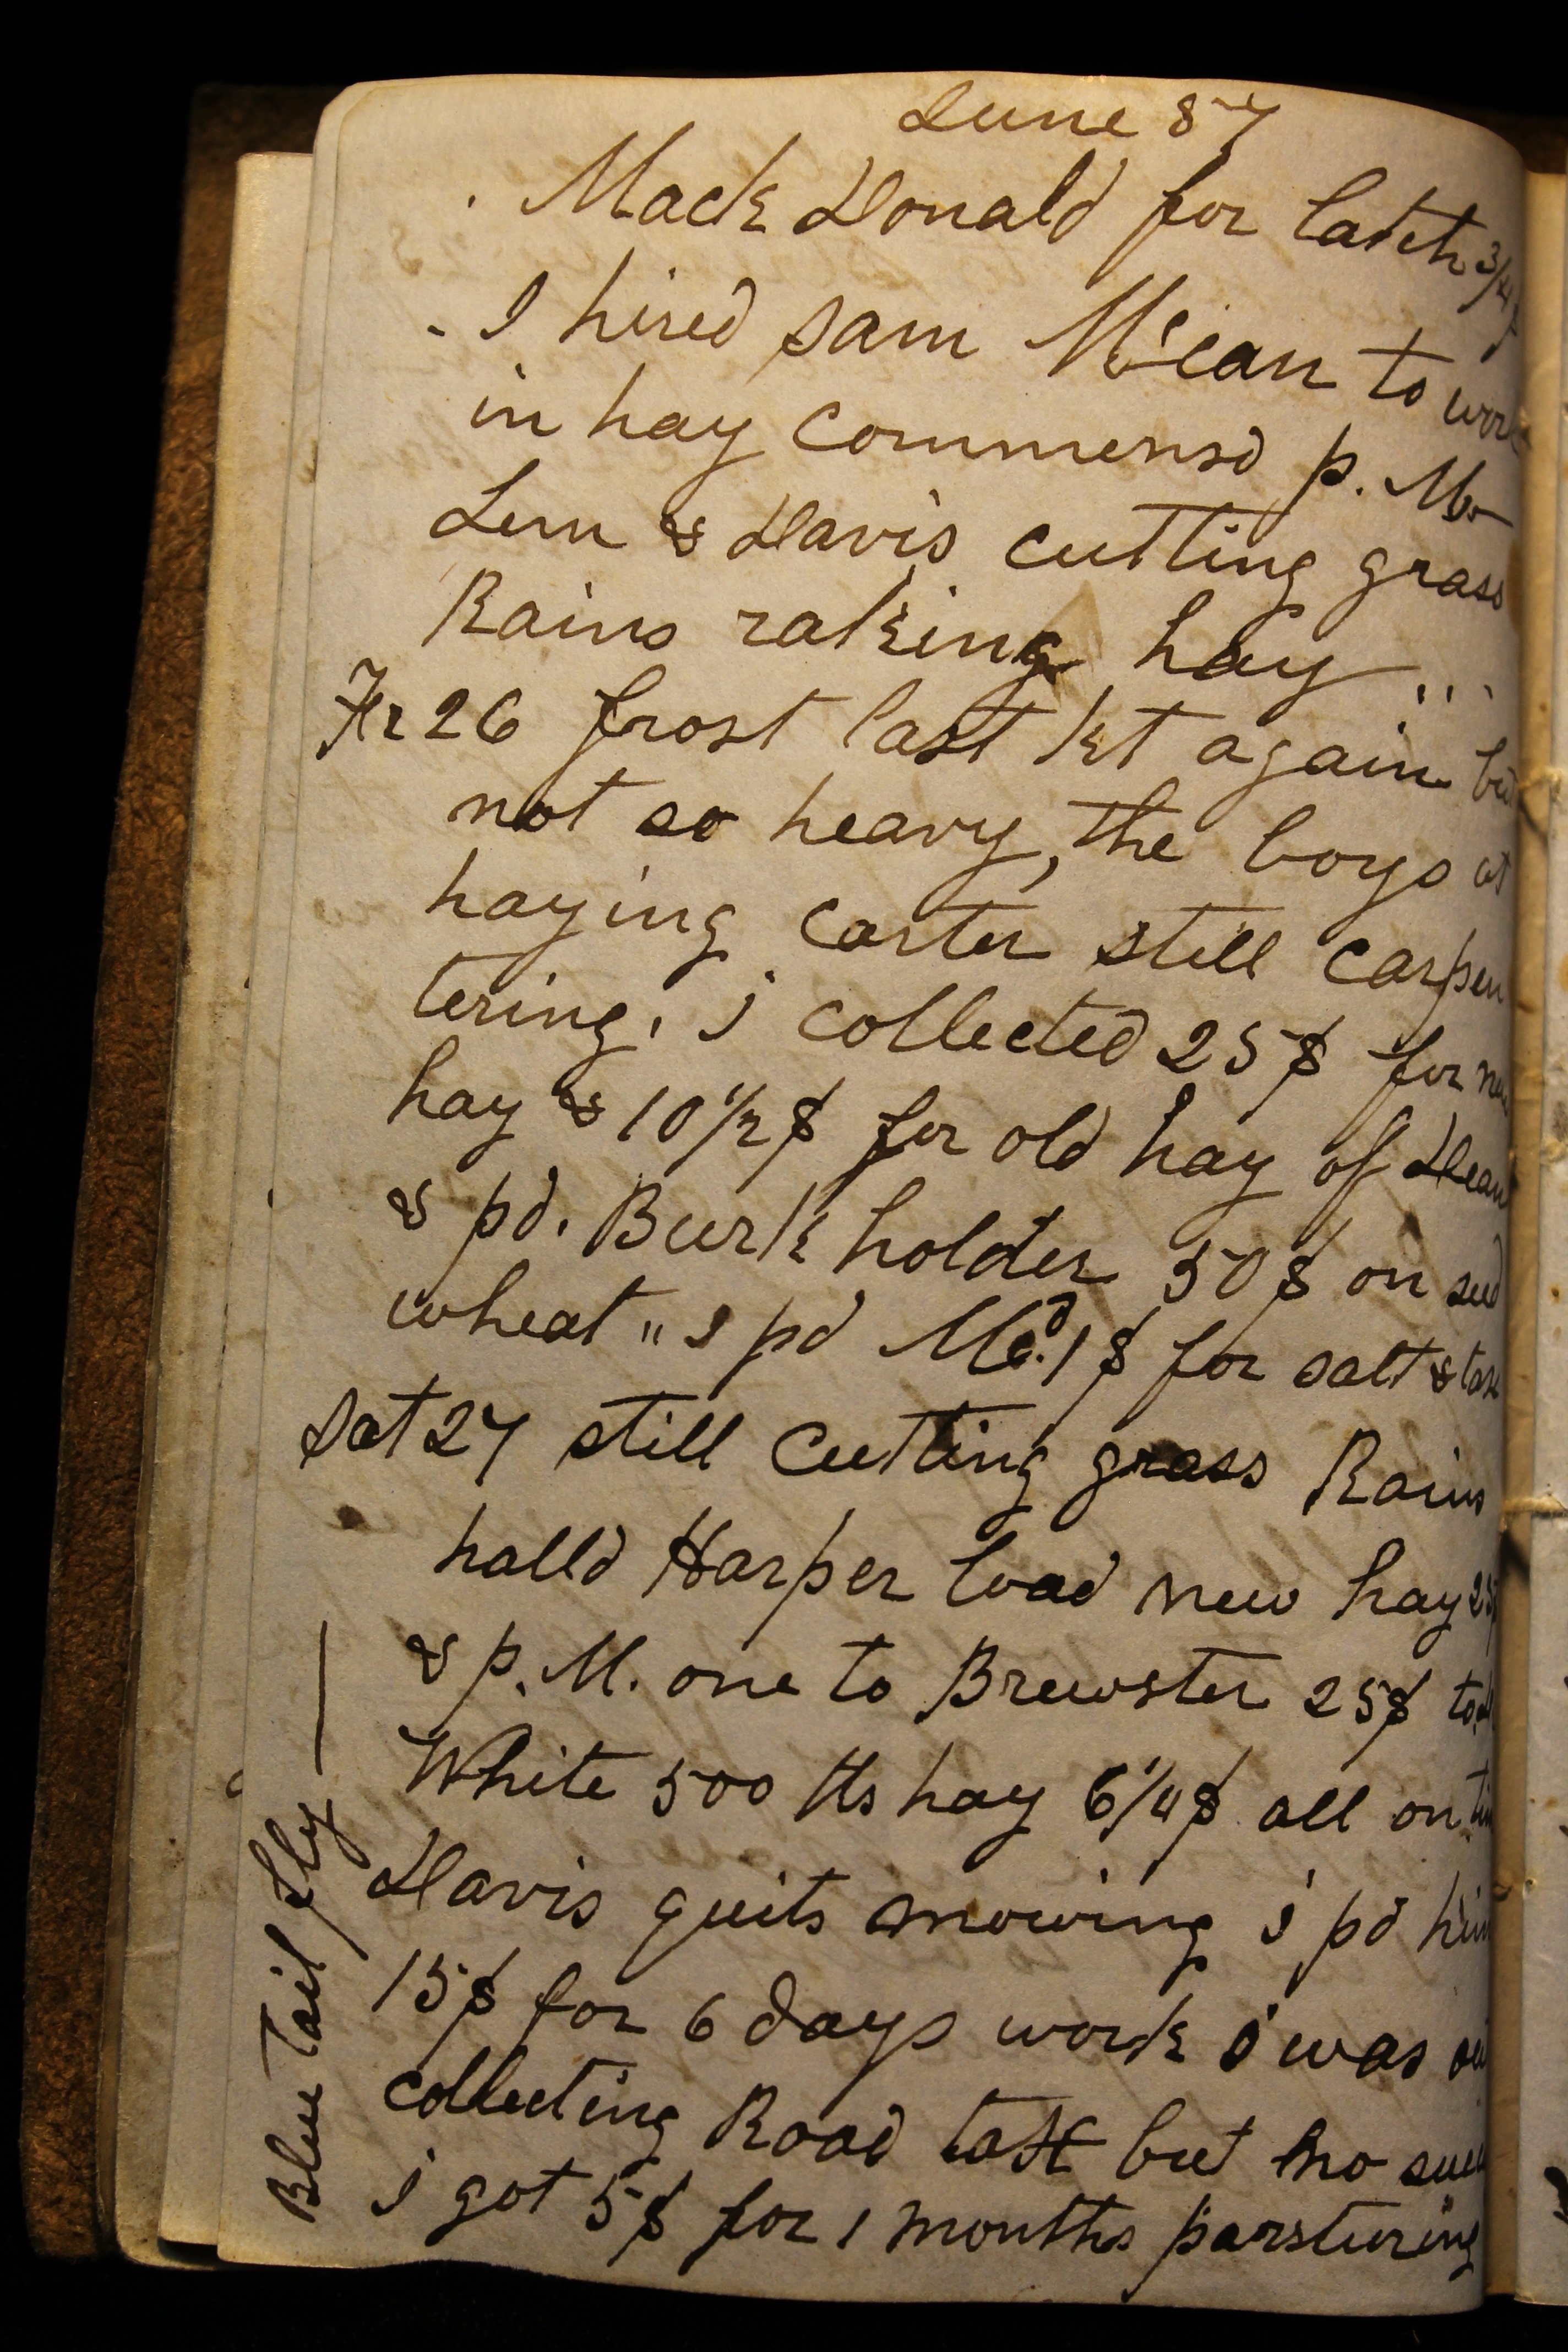 June 87
. Mack Donald for latch 3/4$
- I hired Sam McCan to work
in hay commensd p. M
Lem & Davis cutting grass
Rains raking hay
Fr 26 frost last kt again but
not so heavy, the boys at
haying carter still carpen
tering, i collected 25$ for new
hay & 10 1/2$ for old hay of Dean
& pd. Burkholder 50$ on seed
wheat " I pd McD. 1$ for salt &
Sat 27 still cutting grass Rains
halld Harper load new hay 25$
& p. M. one to Brewster 25$
White 500 lbs hay 6 1/4$ all on time
Davis quits mowing i pd him
15$ for 6 days work i was out
collecting Road tax but no
i got 5$ for 1 months parsturing
Blue Tail fly —